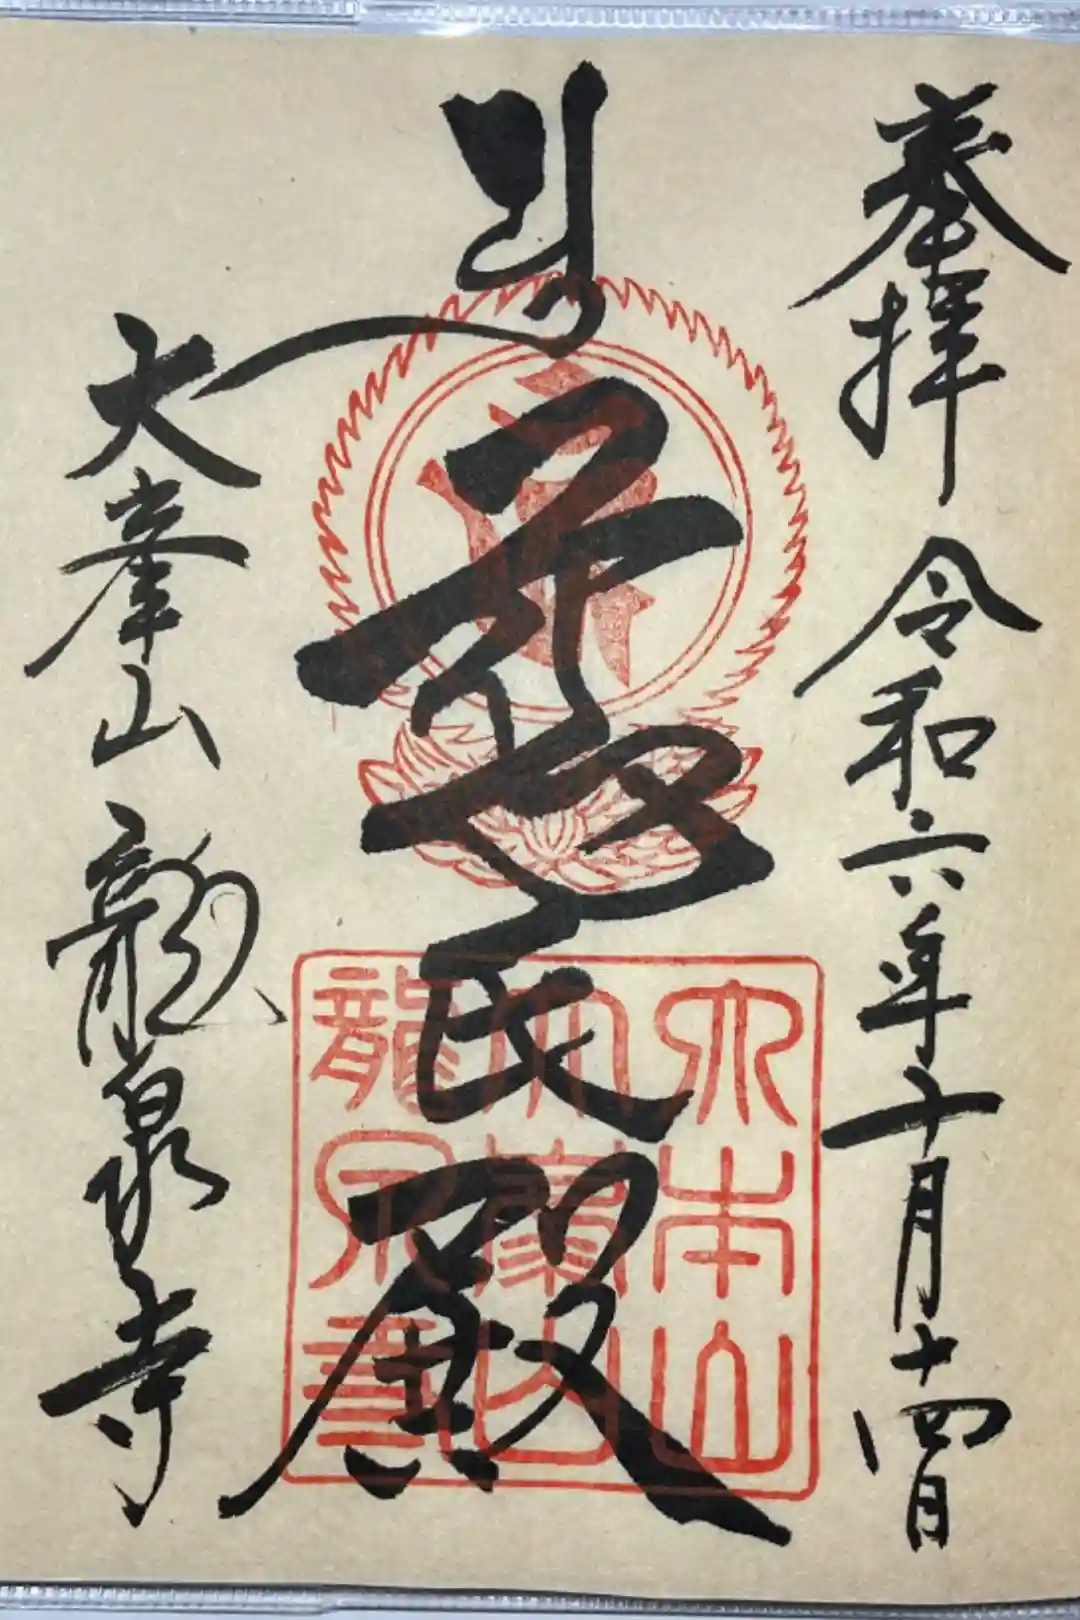 奉拝 令和六年十月十四日
慈氏殿
大峯山 龍泉寺
大本山
大峯山
龍泉寺